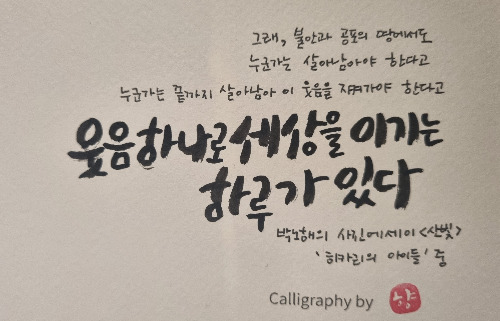 그래, 불안과 공포의 땅에서도
누군가는 살아남아야 한다고
누군가는 끝까지 살아남아 이 웃음을 지켜가야 한다고
웃음 하나로 세상을 이기는
하루가 있다
박노해의 사진에세이 <산빛>
'히카리의 아이들' 중
Calligraphy by 향